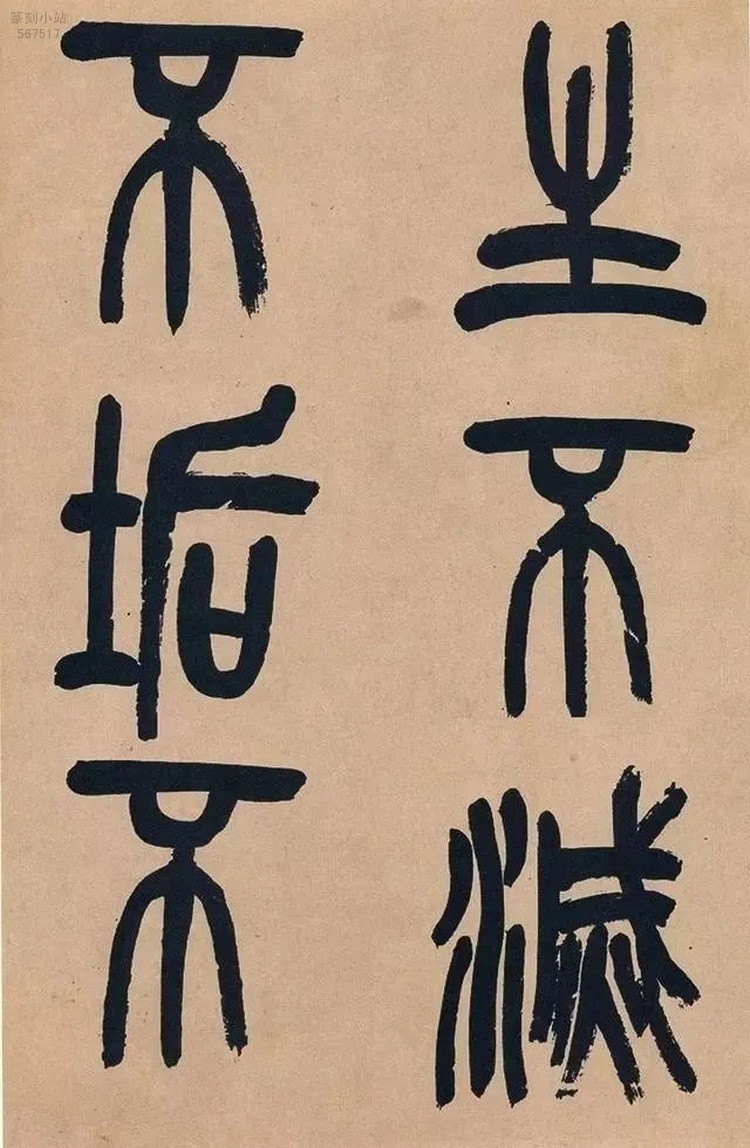 生不滅
不垢不
篆刻小站
567517